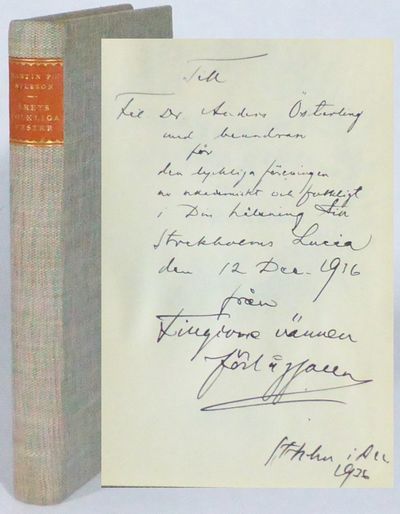 MARTIN P:N
NILSSON
ÅRETS
FOLKLIGA
FESTER
Till
Fil Dr. Anders Österling
med beundran
för
den lyckliga föreningen
av akademiskt och folkligt
i Din hälsning till
Stockholms Lucia
den 12 Dec. 1936
från
Tillgivne vännen
förläggaren
Sthlm i Dec
1936